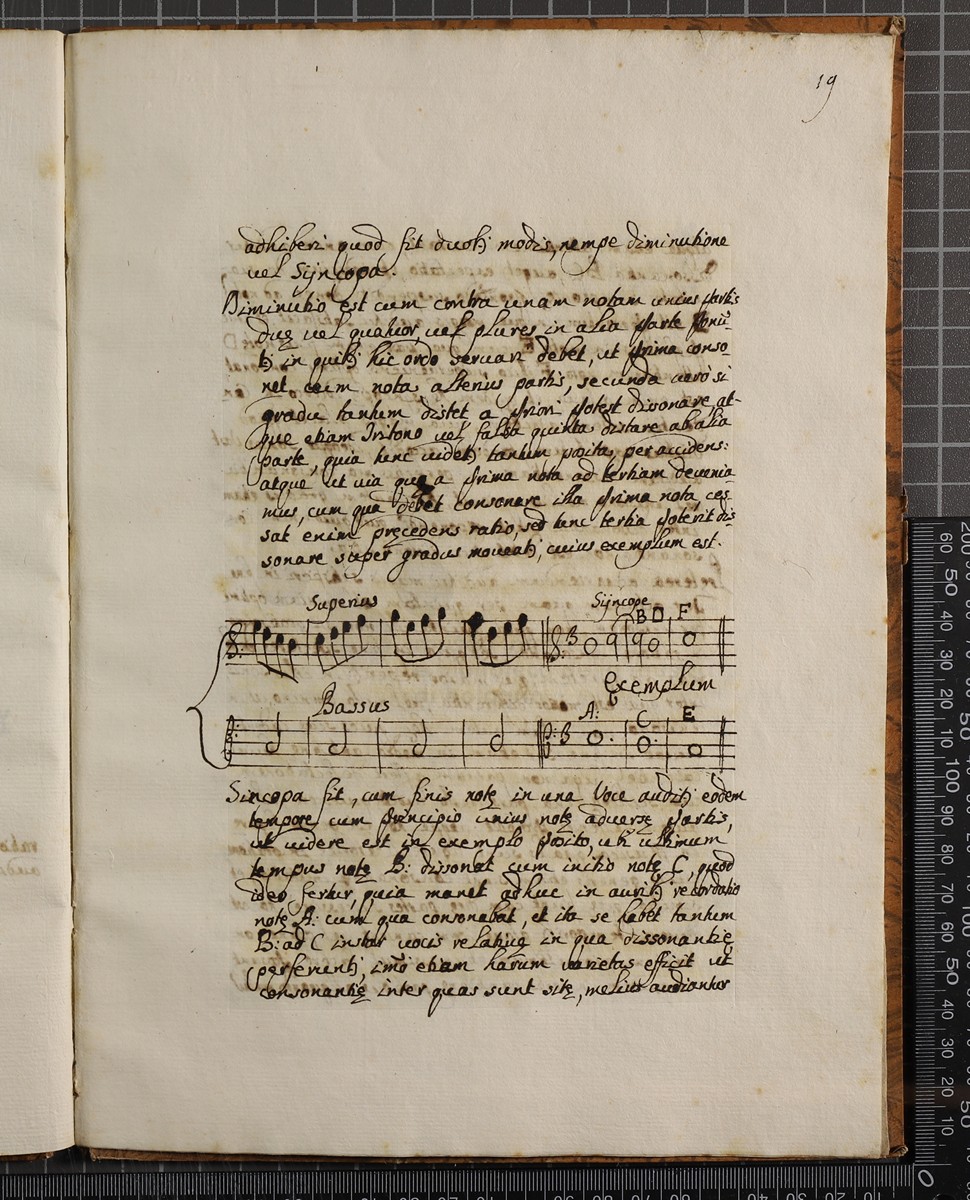 19
adhiberi quod fit duobꝫ modis, nempe diminutione
vel Sijncopa.
Diminutio est cum contra unam notam unius partis
duę vel quatuor, vel plures in alia parte ponū-
tꝫ in quibꝫ hic ordo servari debet, ut prima conso-
net cum nota alterius partis, secunda verò si
gradu tantum distet a priori potest dissonare, at-
que etiam Tritono vel falsa quinta distare ab alia
parte, quia tunc videtꝫ tantum posita per accidens:
atque ut via qua a prima nota ad tertiam devenia-
mus, cum qua debet consonare illa prima nota, ces
sat enim pręcedens ratio, sed tunc tertia poterit dis
sonare super gradus moveatꝫ, cuius exemplum est.
Superius
Sijncope
B D F
Exemplum
Bassus
A: C E
Sincopa fit, cum finis notę in una Voce auditꝫ eodem
tempore cum principio unius notę adversę partis,
ut videre est in exemplo posito, ubi ultimum
tempus notę B: dissonat cum initio notę C, quod
ideo fertur, quia manet adhuc in auribꝫ recordatio
notę A: cum qua consonabat, et ita se habet tantum
B: ad C instar vocis relativę in qua dissonantię
perferuntꝫ, imò etiam harum varietas efficit ut
consonantię inter quas sunt sitę, melius audiantur